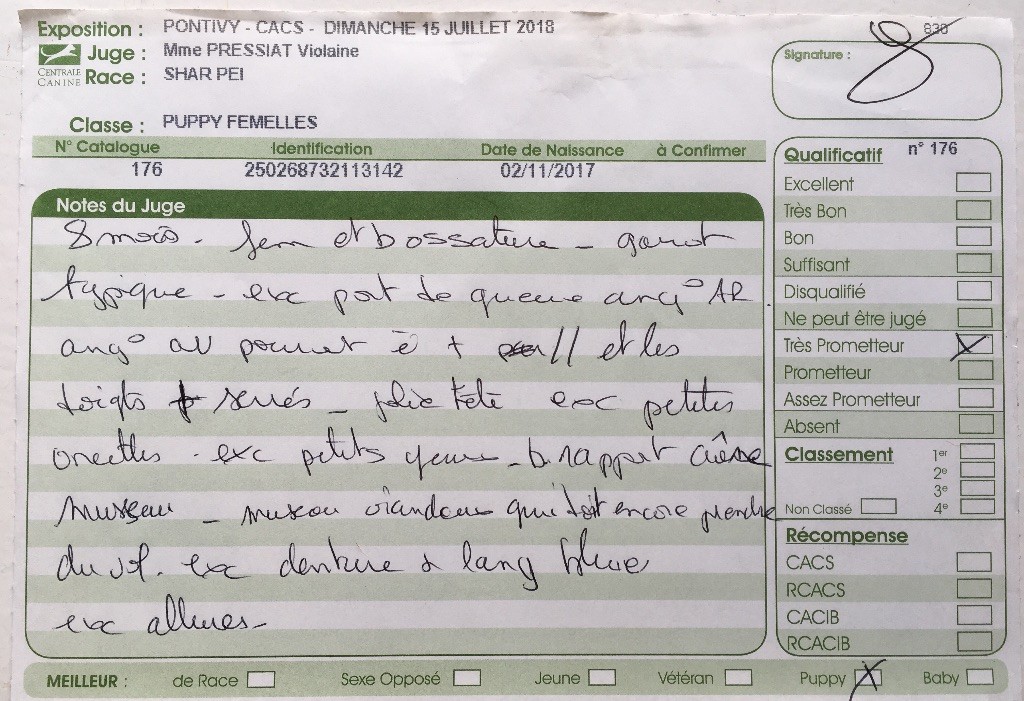 Exposition : PONTIVY - CACS - DIMANCHE 15 JUILLET 2018
838
Juge : Mme PRESSIAT Violaine
CENTRALE CANINE
Race : SHAR PEI
Signature :
Classe : PUPPY FEMELLES
N° Catalogue Identification Date de Naissance à Confirmer
176 250268732113142 02/11/2017
Notes du Juge
8 mois - fem et bossature - garot
typique - exc port de queue ang° AR.
ang° av pourrait ê + // et les
doigts + serrés - jolie tête exc petites
oreilles - exc petits yeux - b. rapport crâne
museau - museau qui doit encore prendre
du vol. exc denture & lang bleue
exc allures -
Qualificatif n° 176
Excellent
Très Bon
Bon
Suffisant
Disqualifié
Ne peut être jugé
Très Prometteur X
Prometteur
Assez Prometteur
Absent
Classement 1er
2e
3e
Non Classé 4e
Récompense
CACS
RCACS
CACIB
RCACIB
MEILLEUR : de Race Sexe Opposé Jeune Vétéran Puppy X Baby